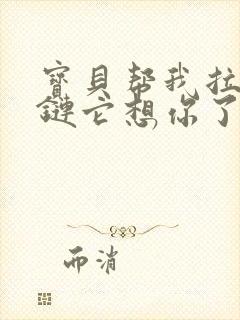 寶貝幫我拉
鏈它想你了
而消